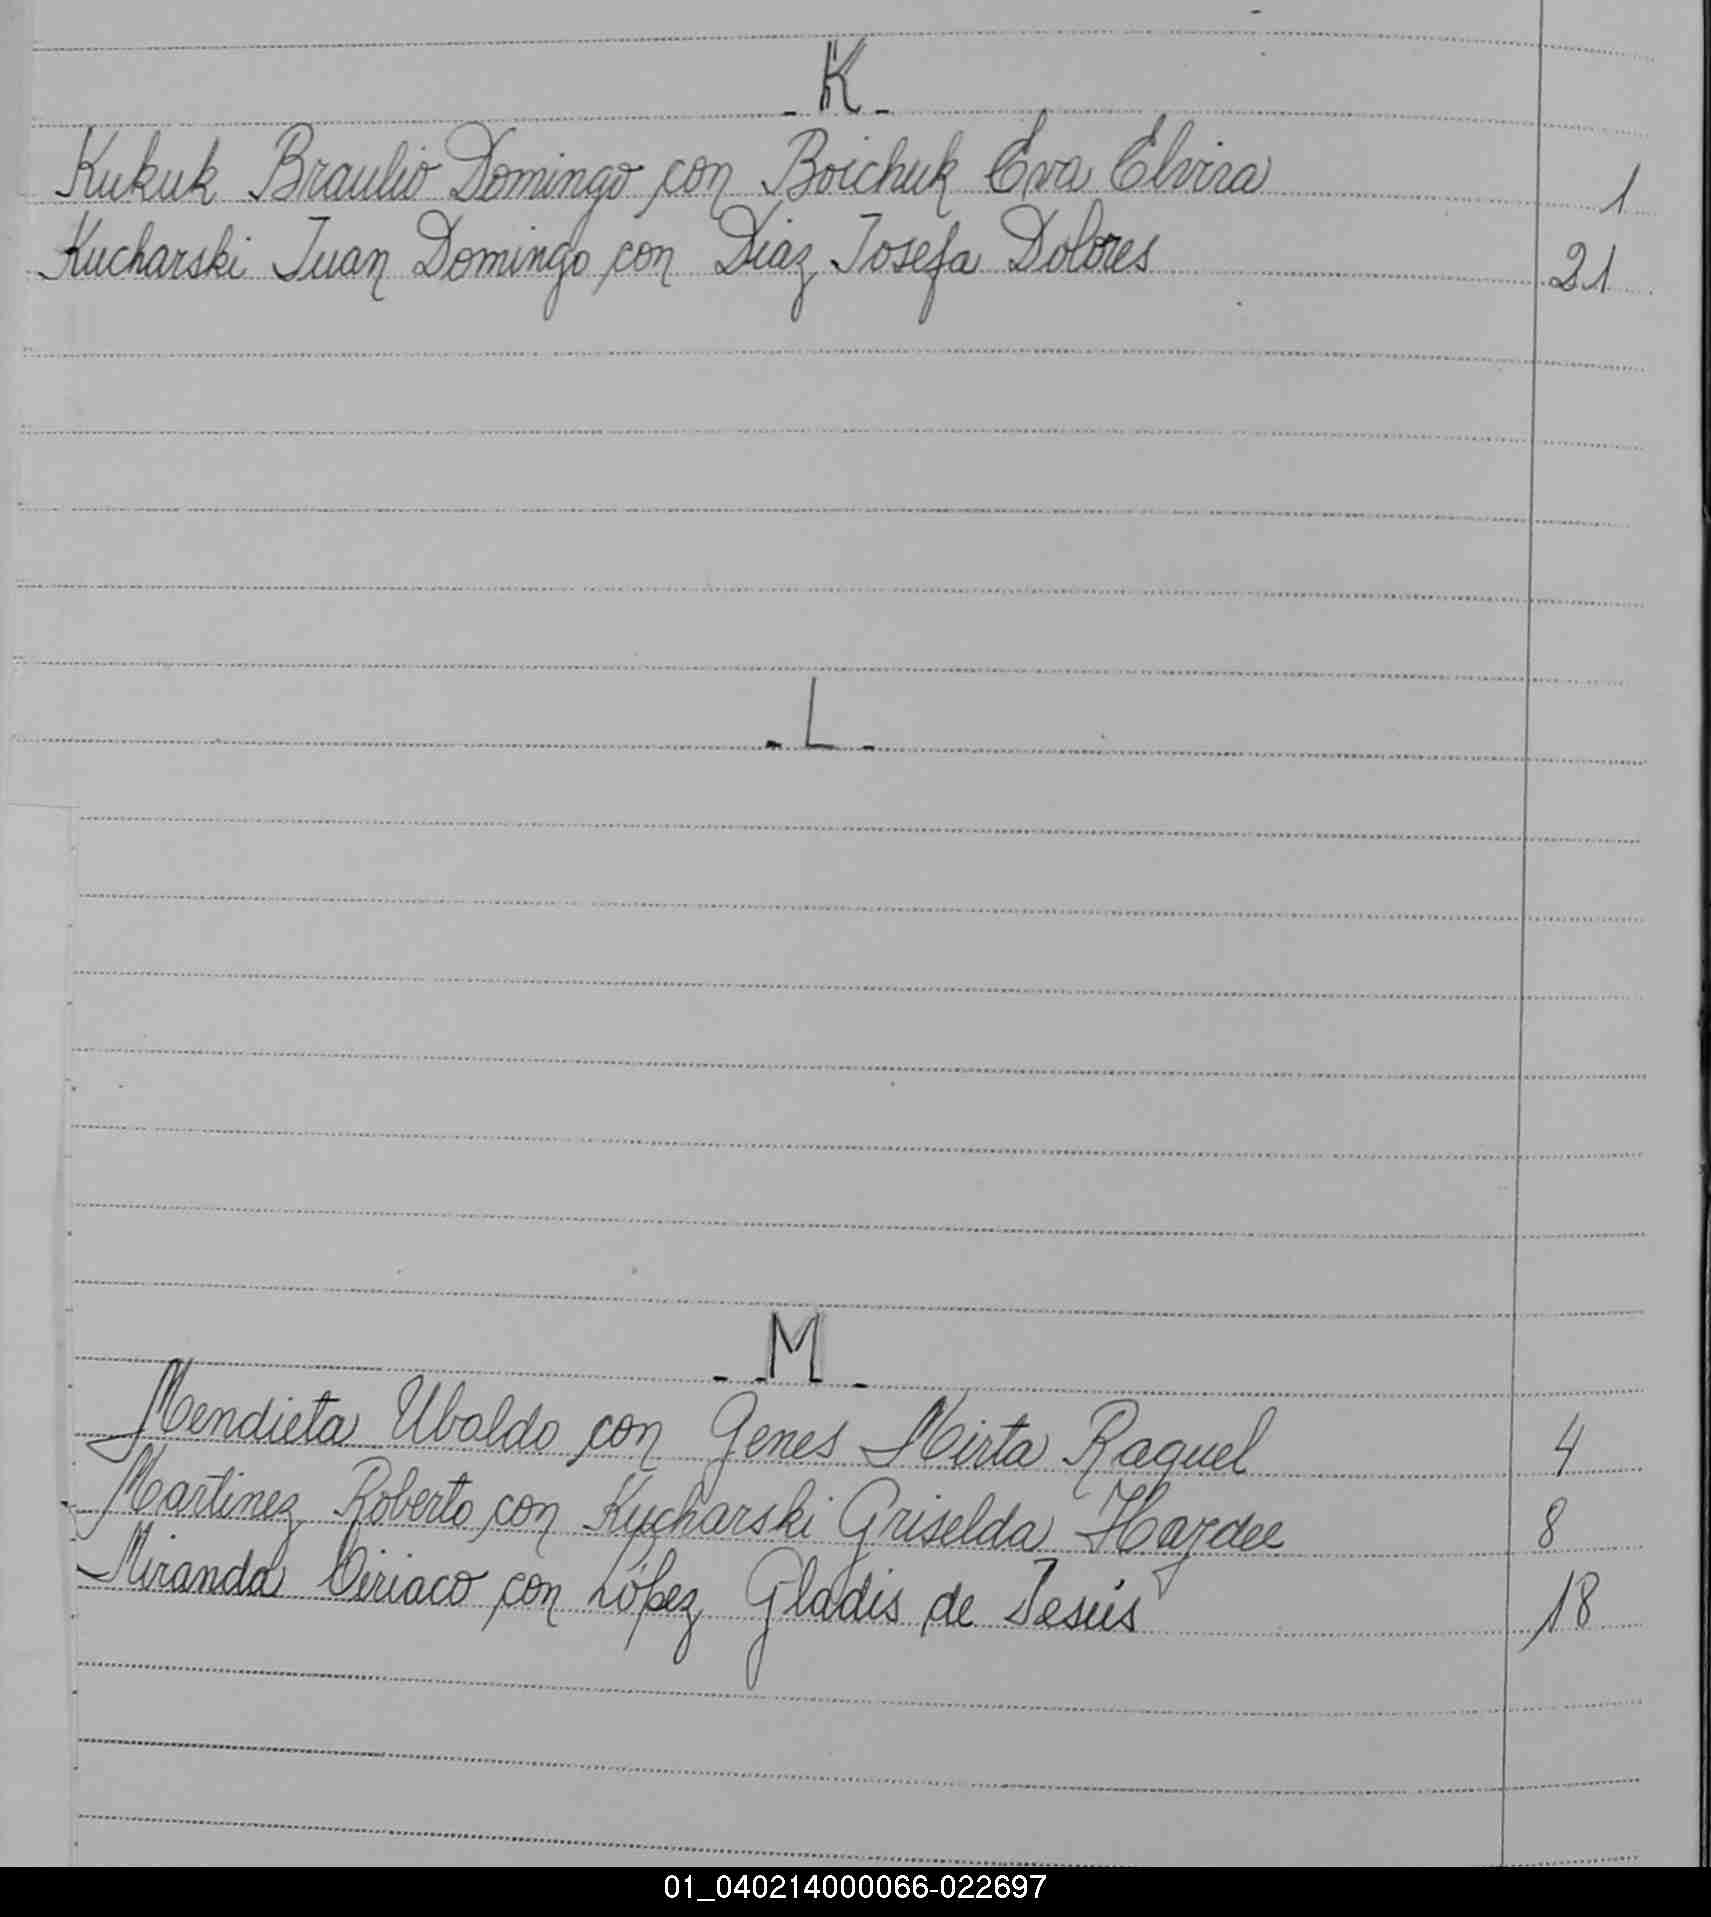 - K -
Kukuk Braulio Domingo con Boichuk Eva Elvira 1
Kucharski Juan Domingo con Diaz Josefa Dolores 21
- L -
- M -
Mendieta Ubaldo con Genes Mirta Raquel 4
Martinez Roberto con Kucharski Griselda Haydee 8
Miranda Ciriaco con López Gladis de Jesús 18
01_040214000066-022697